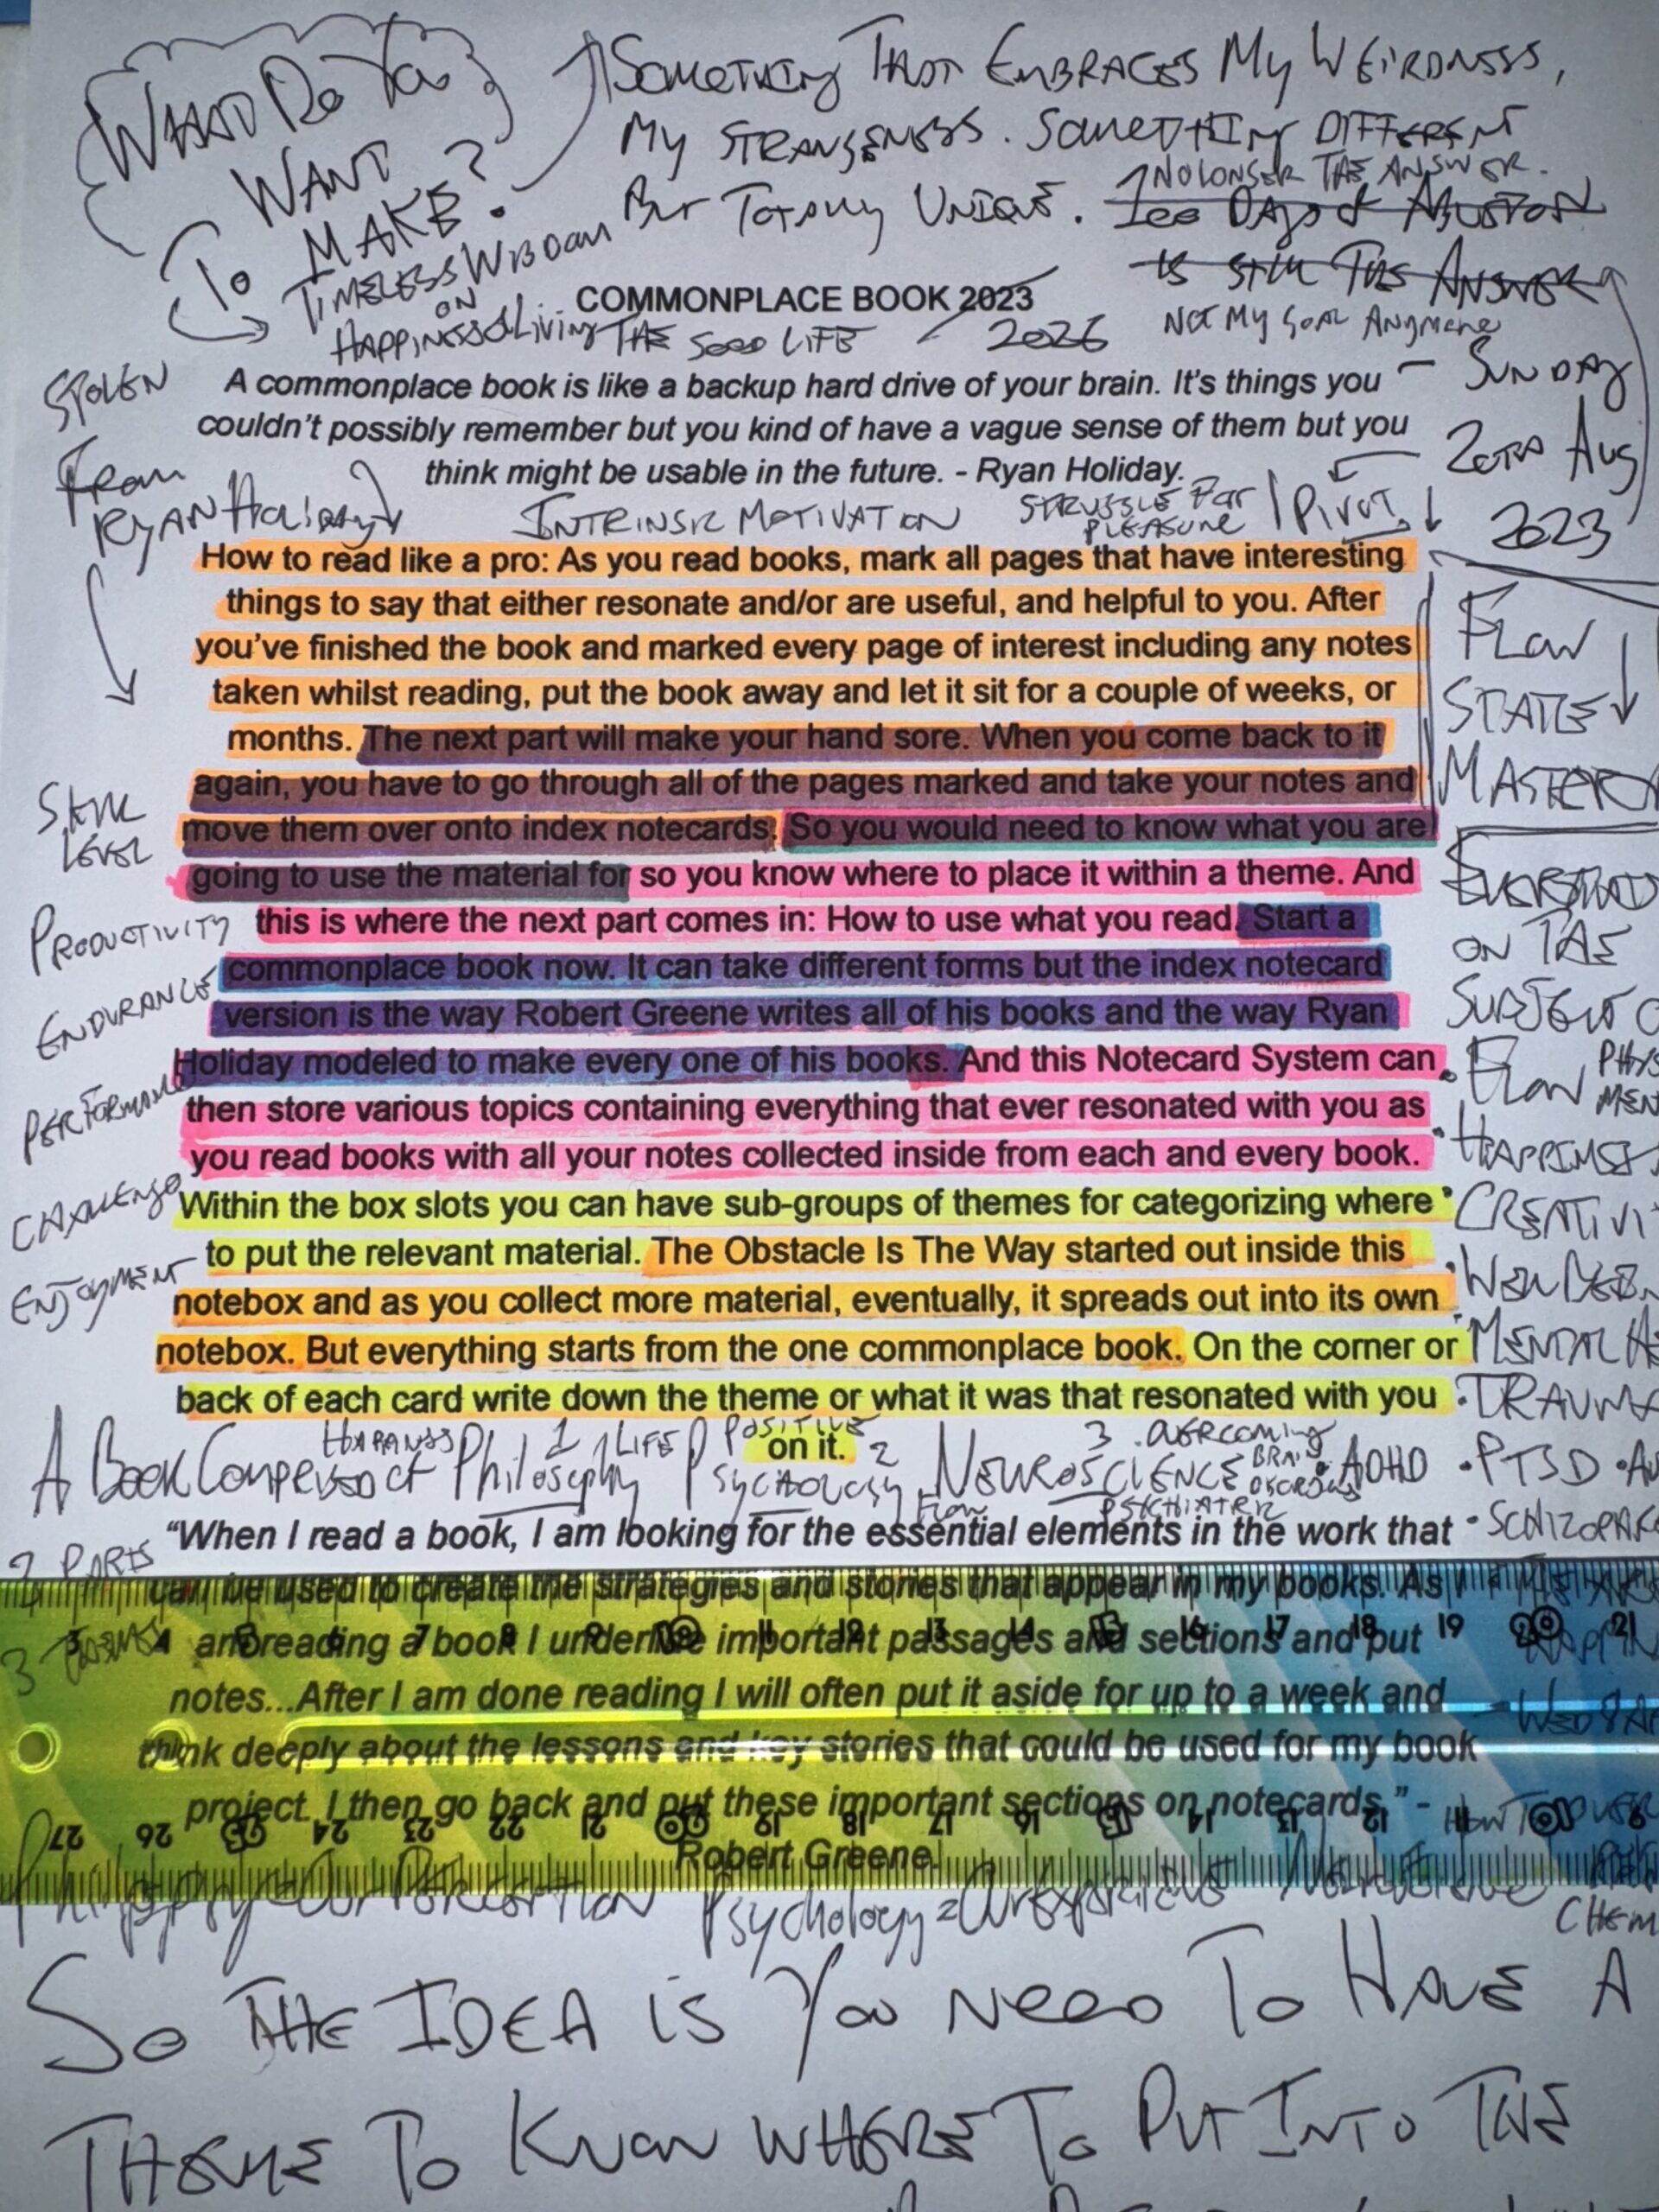 WHAT DO YOU
WANT
TO MAKE?
SOMETHING THAT EMBRACES MY WEIRDNESS,
MY STRANGENESS. SOMETHING DIFFERENT
BUT TOTALLY UNIQUE.
NO LONGER THE ANSWER.
100 DAYS OF
IS STILL THE ANSWER
NOT MY GOAL ANYMORE
TIMELESS WISDOM
ON
HAPPINESS & Living THE GOOD LIFE
COMMONPLACE BOOK 2023
2026
SUNDAY
20TH Aug
2023
STOLEN
From
RYAN Holiday
A commonplace book is like a backup hard drive of your brain. It's things you
couldn't possibly remember but you kind of have a vague sense of them but you
think might be usable in the future. - Ryan Holiday.
INTRINSIC MOTIVATION
STRUGGLE FOR
PLEASURE
PIVOT
How to read like a pro: As you read books, mark all pages that have interesting
things to say that either resonate and/or are useful, and helpful to you. After
you've finished the book and marked every page of interest including any notes
taken whilst reading, put the book away and let it sit for a couple of weeks, or
months. The next part will make your hand sore. When you come back to it
again, you have to go through all of the pages marked and take your notes and
move them over onto index notecards. So you would need to know what you are
going to use the material for so you know where to place it within a theme. And
this is where the next part comes in: How to use what you read. Start a
commonplace book now. It can take different forms but the index notecard
version is the way Robert Greene writes all of his books and the way Ryan
Holiday modeled to make every one of his books. And this Notecard System can
then store various topics containing everything that ever resonated with you as
you read books with all your notes collected inside from each and every book.
Within the box slots you can have sub-groups of themes for categorizing where
to put the relevant material. The Obstacle Is The Way started out inside this
notebox and as you collect more material, eventually, it spreads out into its own
notebox. But everything starts from the one commonplace book. On the corner or
back of each card write down the theme or what it was that resonated with you
on it.
SKILL
LEVEL
PRODUCTIVITY
ENDURANCE
PERFORMANCE
CHALLENGE
ENJOYMENT
FLOW
STATE
MASTER
ON THE
SUBJECT O
FLOW
PHYS
MEN
HAPPINESS
CREATIVI
WONDER
MENTAL HE
TRAUMA
A BOOK COMPRISED OF Philosophy 1 LIFE POSITIVE PSYCHOLOGY 2 NEUROSCIENCE 3
FLOW
OVERCOMING
BRAIN
PSYCHIATRIC
ADHD · PTSD · AU
"When I read a book, I am looking for the essential elements in the work that
can be used to create the strategies and stories that appear in my books. As I
am reading a book I underline important passages and sections and put
notes...After I am done reading I will often put it aside for up to a week and
think deeply about the lessons and key stories that could be used for my book
project. I then go back and put these important sections on notecards." -
Robert Greene.
PARTS
3
4 5 6 7 8 9 10 11 12 13 14 15 16 17 18 19 20 21
27 26 25 24 23 22 21 20 19 18 17 16 15 14 13 12 11 10 9
HOW TO OVER
Philosophy = Our PERCEPTION Psychology = Our Experience Neuroscience
CHEM
SO THE IDEA IS YOU NEED TO HAVE A
THEME TO KNOW WHERE TO PUT INTO THE